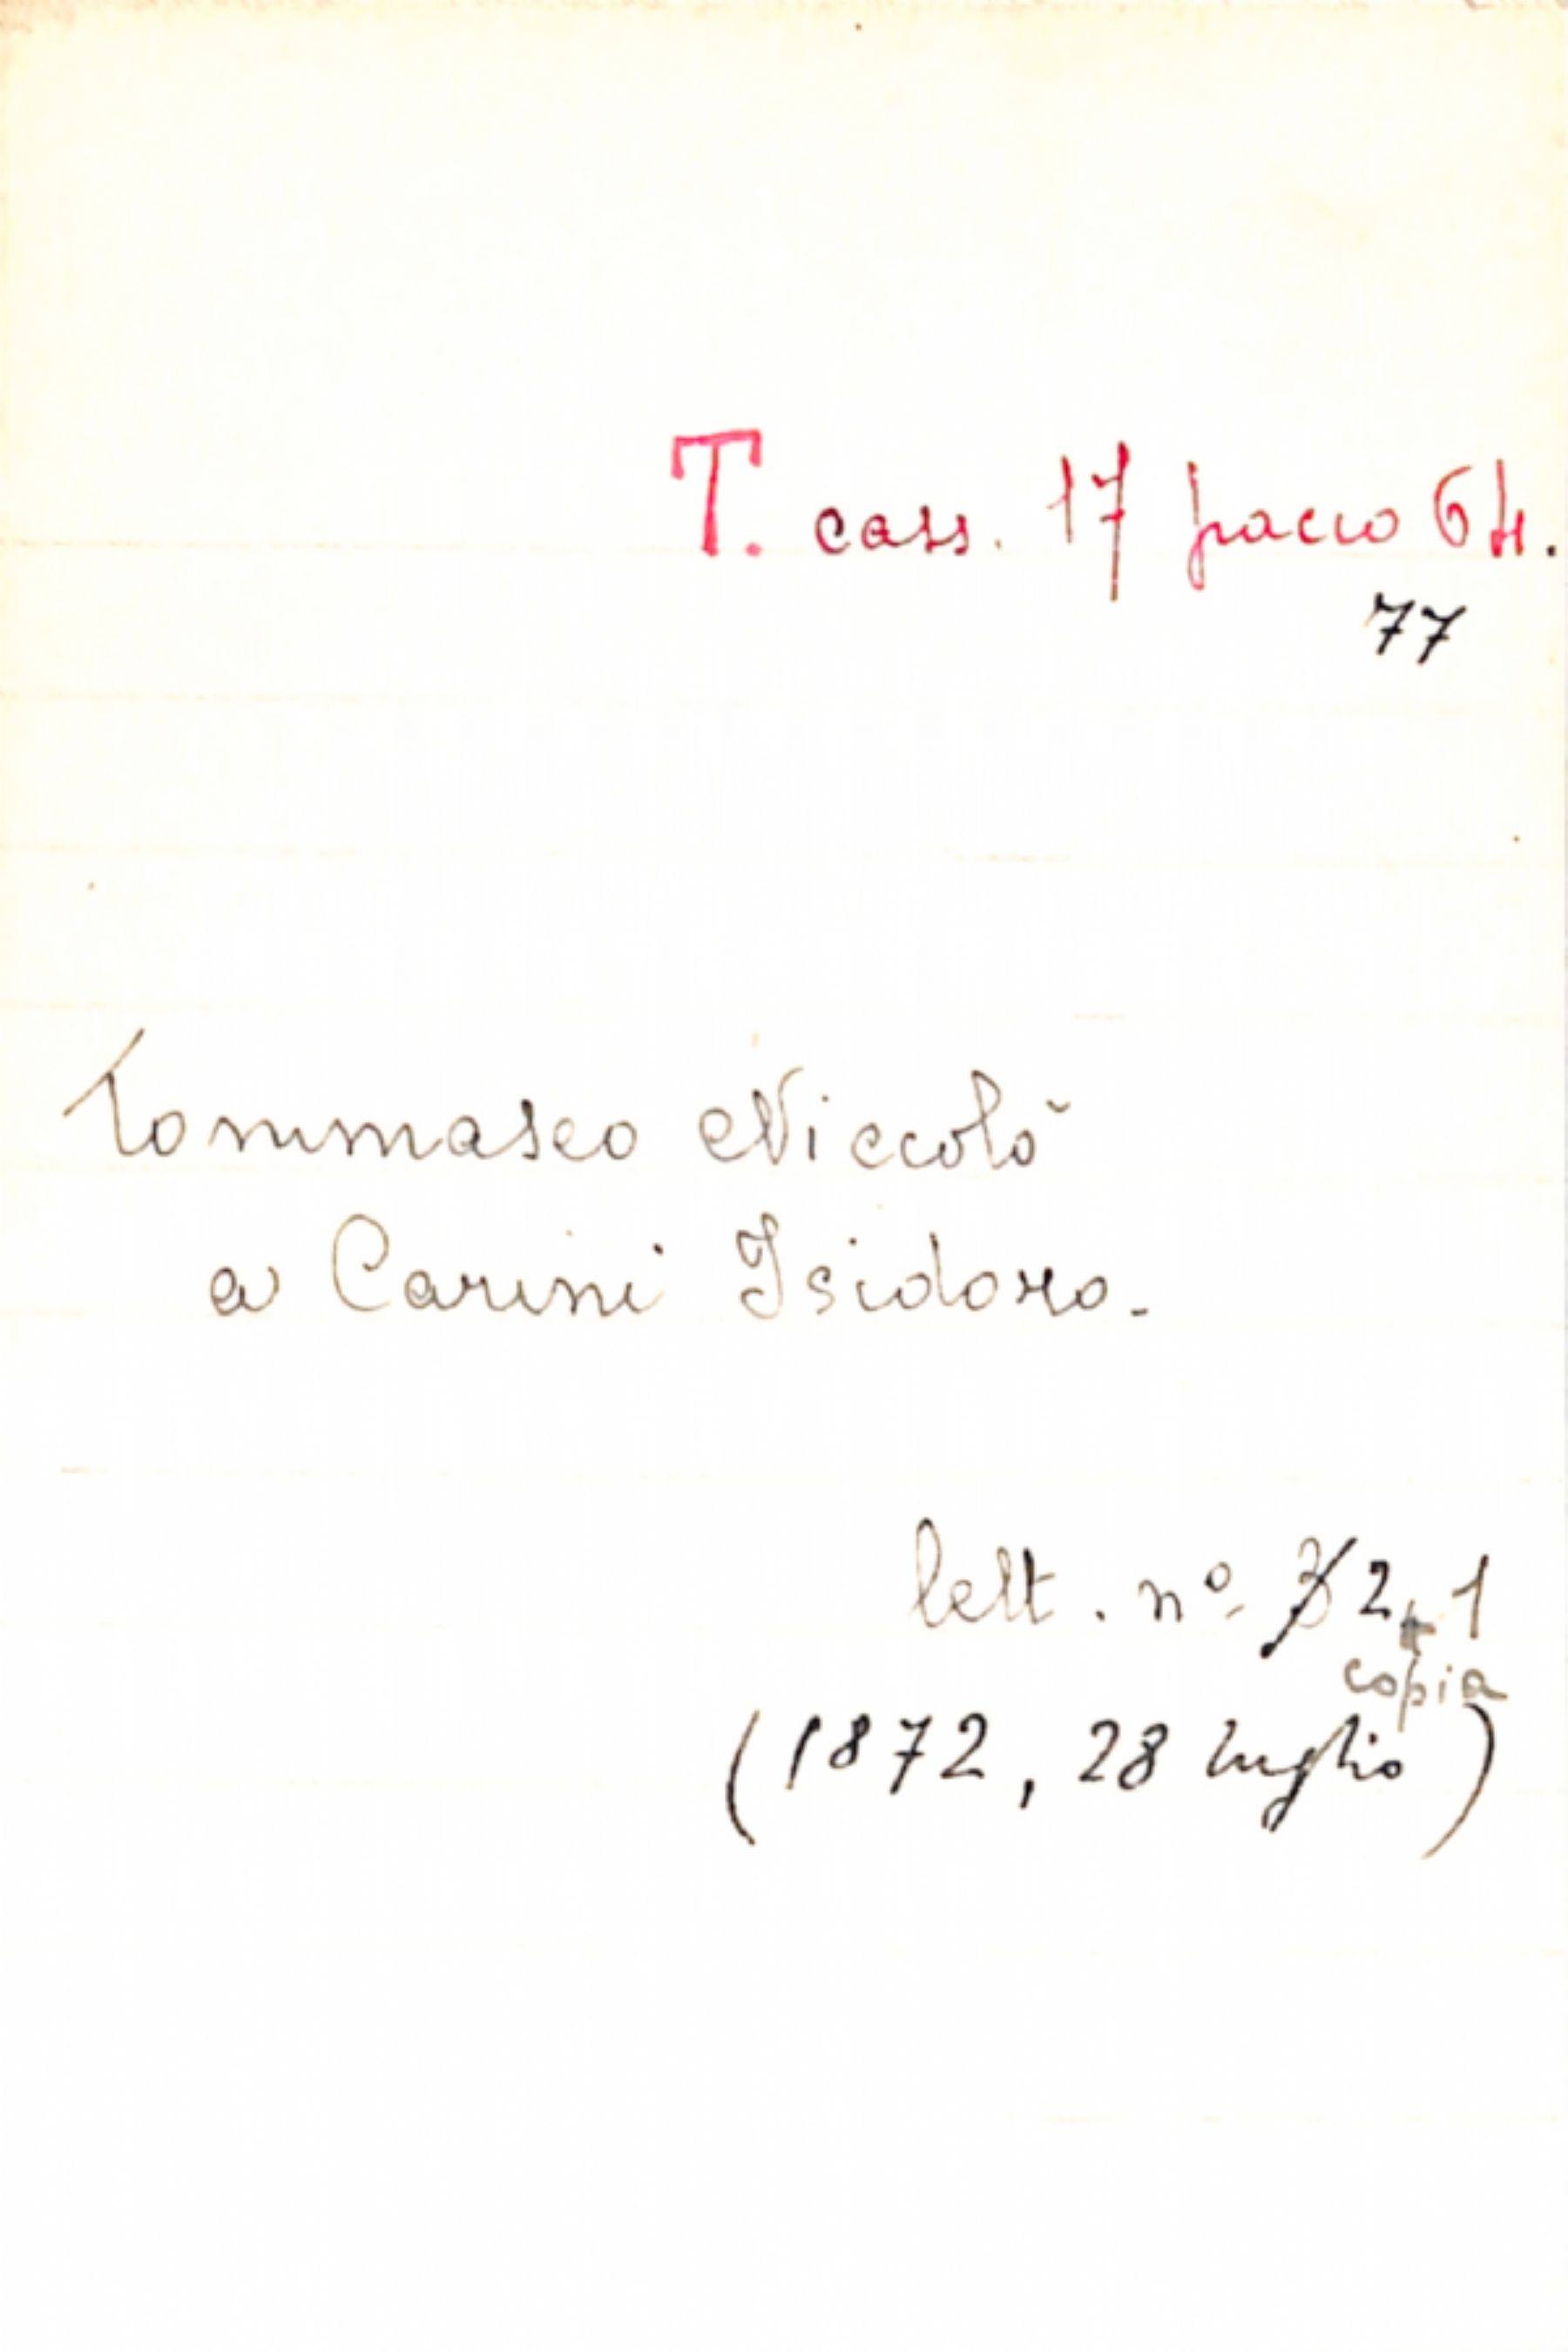 T. cass. 17 pacco 64.
77
Tommaseo Niccolò
a Carini Isidoro.
lett. nº 3 2 + 1
copia
(1872, 28 luglio)